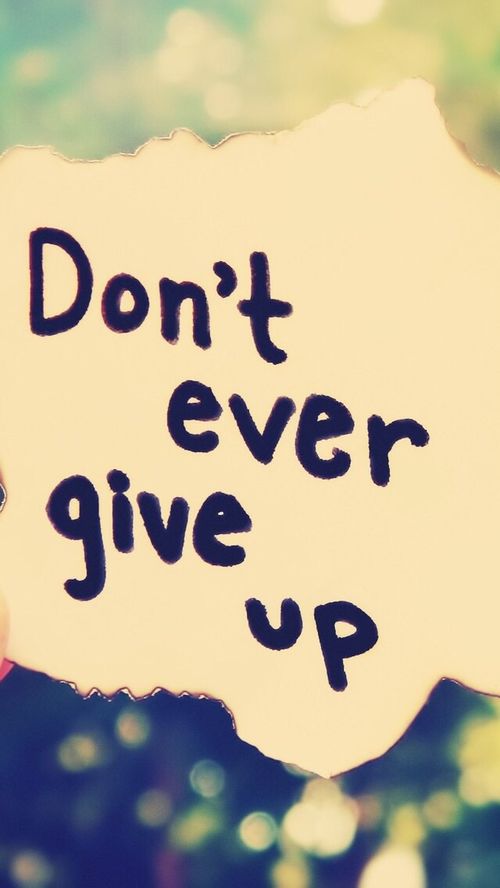 Don't
ever
give
up